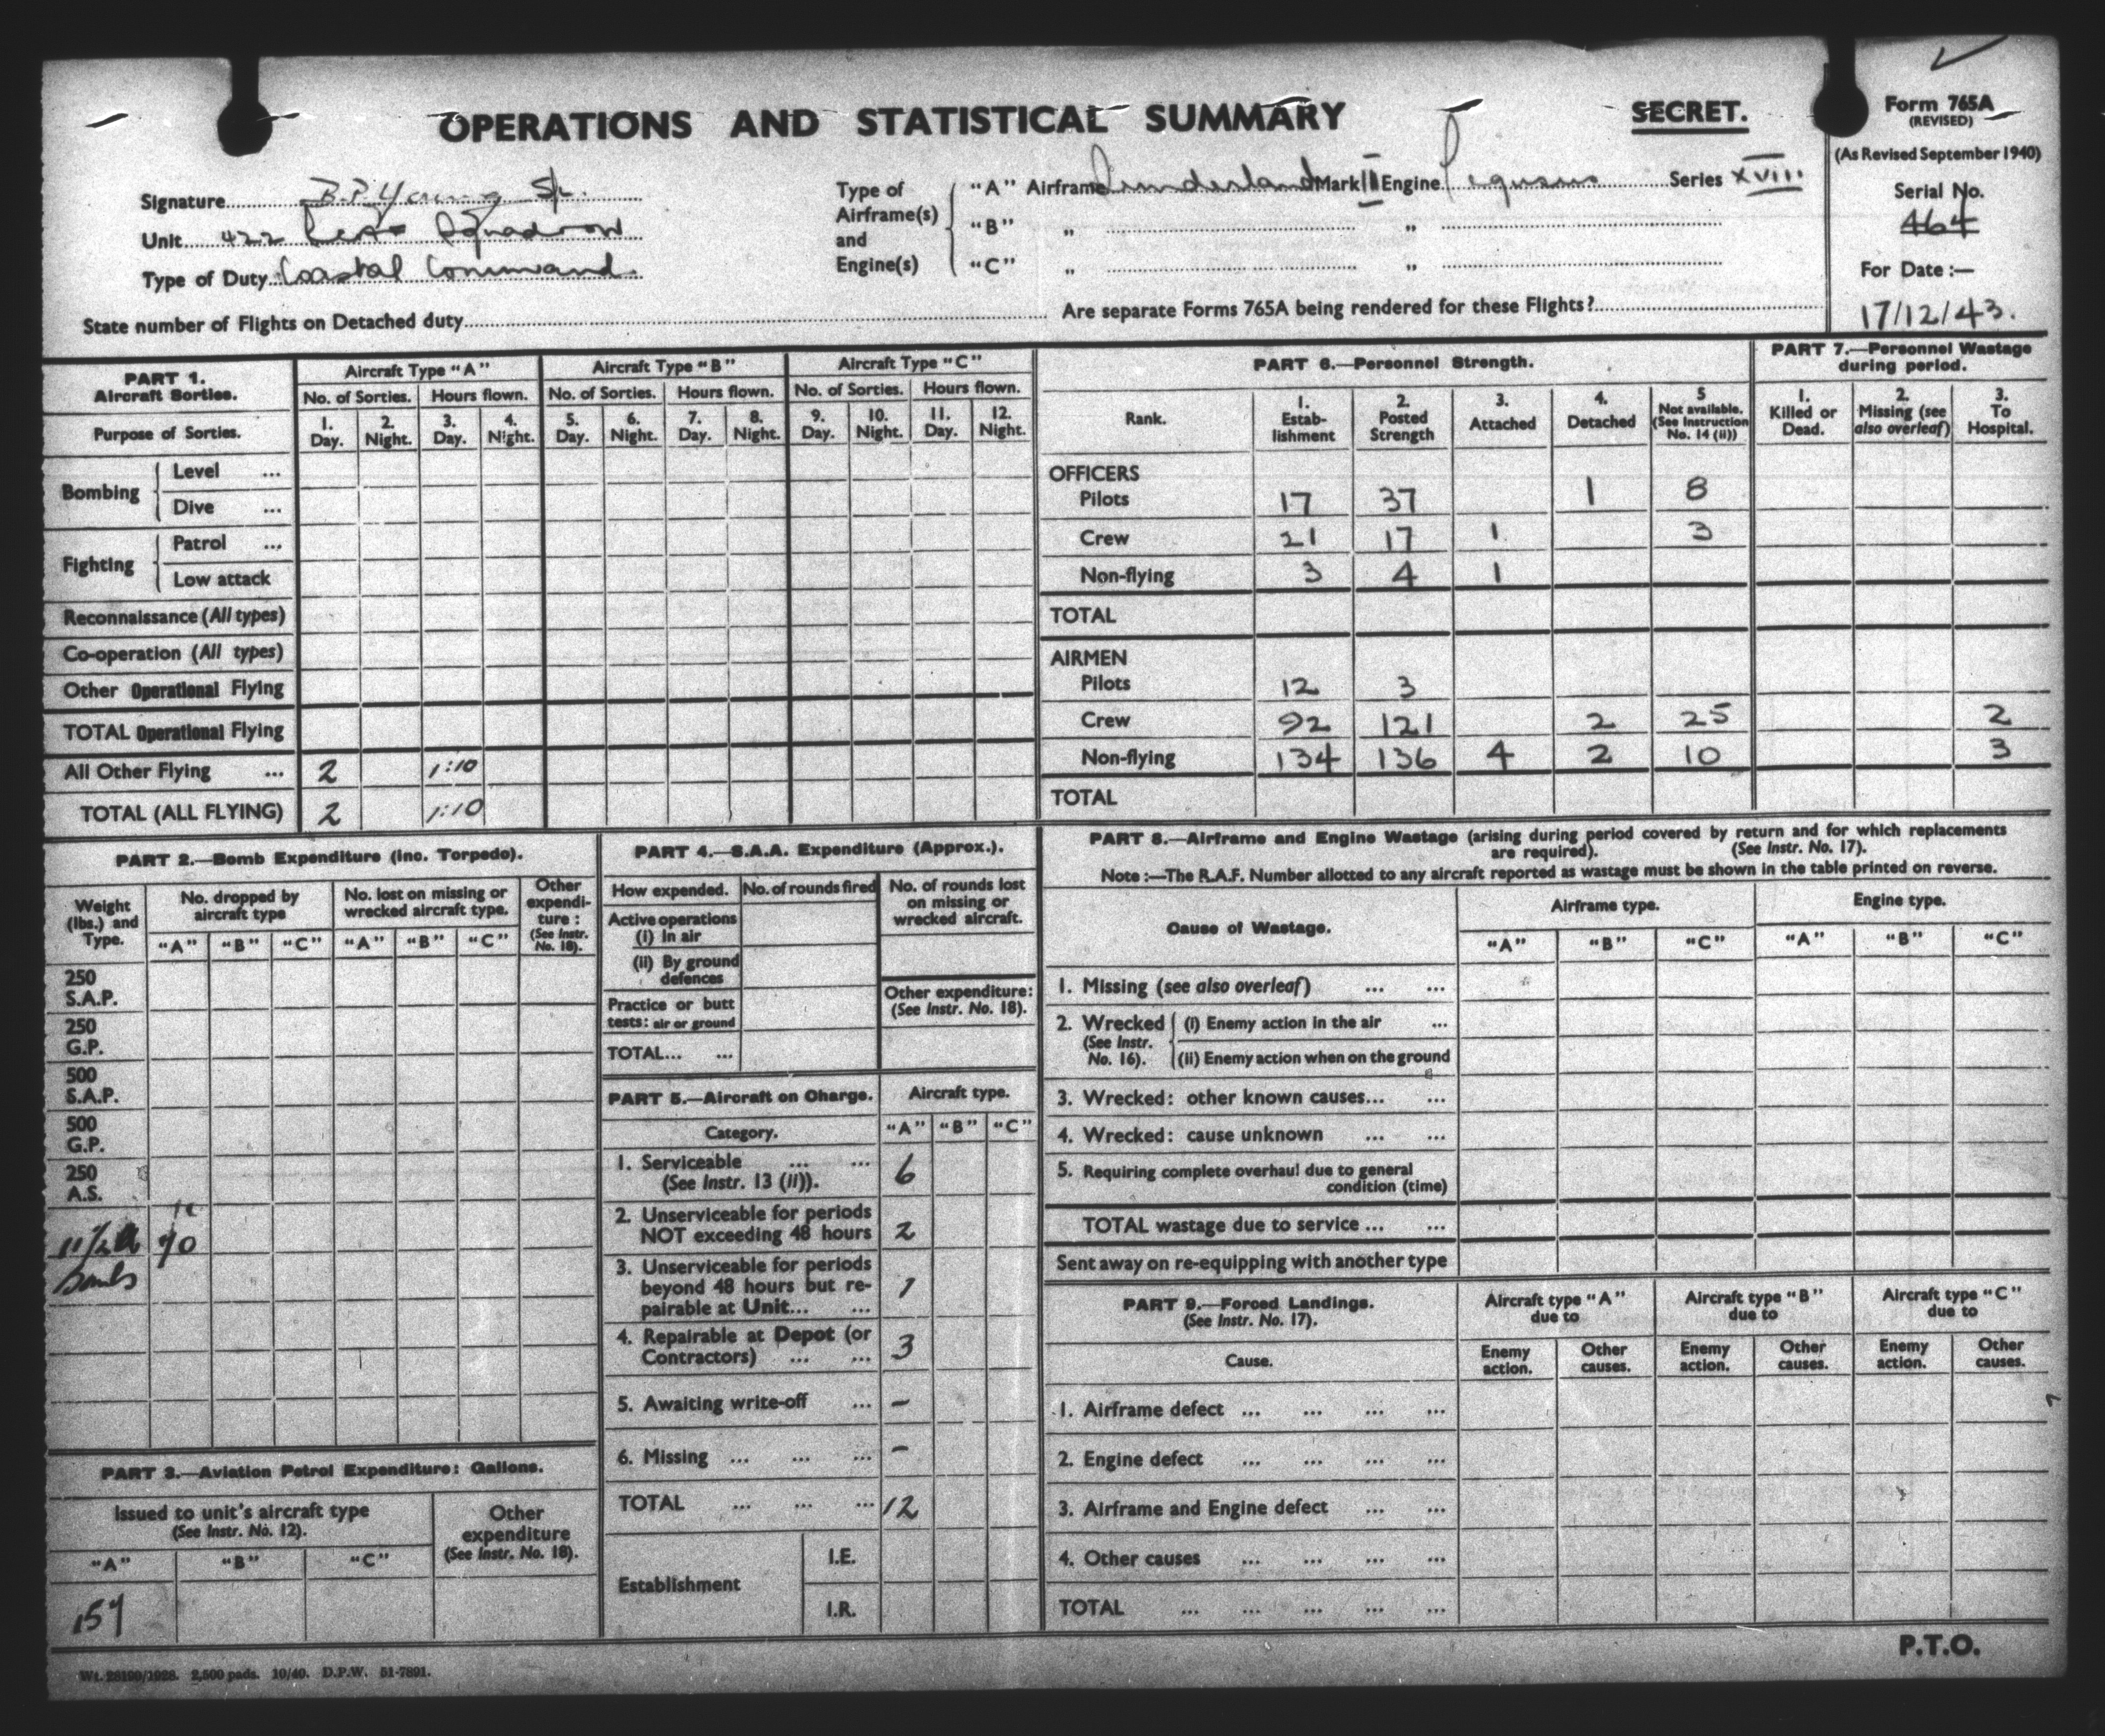 OPERATIONS AND STATISTICAL SUMMARY
SECRET.
Form 765A
(REVISED)
(As Revised September 1940)
Serial No.
464
For Date :—
17/12/43.
Signature B.P. Young S/L.
Unit 422 Squadron
Type of Duty Coastal Command.
Type of Airframe(s) and Engine(s)
"A" Airframe Sunderland Mark III Engine Pegasus Series XVIII
"B" " "
"C" " "
State number of Flights on Detached duty
Are separate Forms 765A being rendered for these Flights?
PART 1.
Aircraft Sorties.
Aircraft Type "A" Aircraft Type "B" Aircraft Type "C"
No. of Sorties. Hours flown. No. of Sorties. Hours flown. No. of Sorties. Hours flown.
Purpose of Sorties.
1. Day. 2. Night. 3. Day. 4. Night. 5. Day. 6. Night. 7. Day. 8. Night. 9. Day. 10. Night. 11. Day. 12. Night.
Bombing
Level ...
Dive ...
Fighting
Patrol ...
Low attack
Reconnaissance (All types)
Co-operation (All types)
Other Operational Flying
TOTAL Operational Flying
All Other Flying ... 2 1:10
TOTAL (ALL FLYING) 2 1:10
PART 6.—Personnel Strength.
Rank.
1. Establishment
2. Posted Strength
3. Attached
4. Detached
5 Not available. (See Instruction No. 14 (ii))
PART 7.—Personnel Wastage during period.
1. Killed or Dead.
2. Missing (see also overleaf)
3. To Hospital.
OFFICERS
Pilots 17 37 1 8
Crew 21 17 1 3
Non-flying 3 4 1
TOTAL
AIRMEN
Pilots 12 3
Crew 92 121 2 25 2
Non-flying 134 136 4 2 10 3
TOTAL
PART 2.—Bomb Expenditure (Inc. Torpedo).
Weight (lbs.) and Type.
No. dropped by aircraft type
No. lost on missing or wrecked aircraft type.
Other expendi-ture : (See Instr. No. 18).
"A" "B" "C" "A" "B" "C"
250 S.A.P.
250 G.P.
500 S.A.P.
500 G.P.
250 A.S.
PART 3.—Aviation Petrol Expenditure: Gallons.
Issued to unit's aircraft type
(See Instr. No. 12).
Other expenditure
(See Instr. No. 18).
"A" "B" "C"
PART 4.—S.A.A. Expenditure (Approx.).
How expended. No. of rounds fired
No. of rounds lost on missing or wrecked aircraft.
Active operations
(i) In air
(ii) By ground defences
Practice or butt tests: air or ground
Other expenditure:
(See Instr. No. 18).
TOTAL... ...
PART 5.—Aircraft on Charge. Aircraft type.
Category. "A" "B" "C"
1. Serviceable ... ... 6
(See Instr. 13 (ii)).
2. Unserviceable for periods
NOT exceeding 48 hours 2
3. Unserviceable for periods
beyond 48 hours but re-
pairable at Unit... ... 1
4. Repairable at Depot (or
Contractors) ... ... 3
5. Awaiting write-off ... –
6. Missing ... ... ... –
TOTAL ... ... ... 12
Establishment
I.E.
I.R.
PART 8.—Airframe and Engine Wastage (arising during period covered by return and for which replacements
are required). (See Instr. No. 17).
Note :—The R.A.F. Number allotted to any aircraft reported as wastage must be shown in the table printed on reverse.
Cause of Wastage.
Airframe type. Engine type.
"A" "B" "C" "A" "B" "C"
1. Missing (see also overleaf) ... ...
2. Wrecked (See Instr. No. 16).
(i) Enemy action in the air ...
(ii) Enemy action when on the ground
3. Wrecked: other known causes... ...
4. Wrecked: cause unknown ... ...
5. Requiring complete overhaul due to general
condition (time)
TOTAL wastage due to service ... ...
Sent away on re-equipping with another type
PART 9.—Forced Landings.
(See Instr. No. 17).
Aircraft type "A" due to
Aircraft type "B" due to
Aircraft type "C" due to
Cause.
Enemy action. Other causes. Enemy action. Other causes. Enemy action. Other causes.
1. Airframe defect ... ... ... ...
2. Engine defect ... ... ... ...
3. Airframe and Engine defect ... ...
4. Other causes ... ... ... ...
TOTAL ... ... ... ... ...
P.T.O.
Wt. 28190/1928. 2,500 pads. 10/40. D.P.W. 51-7891.